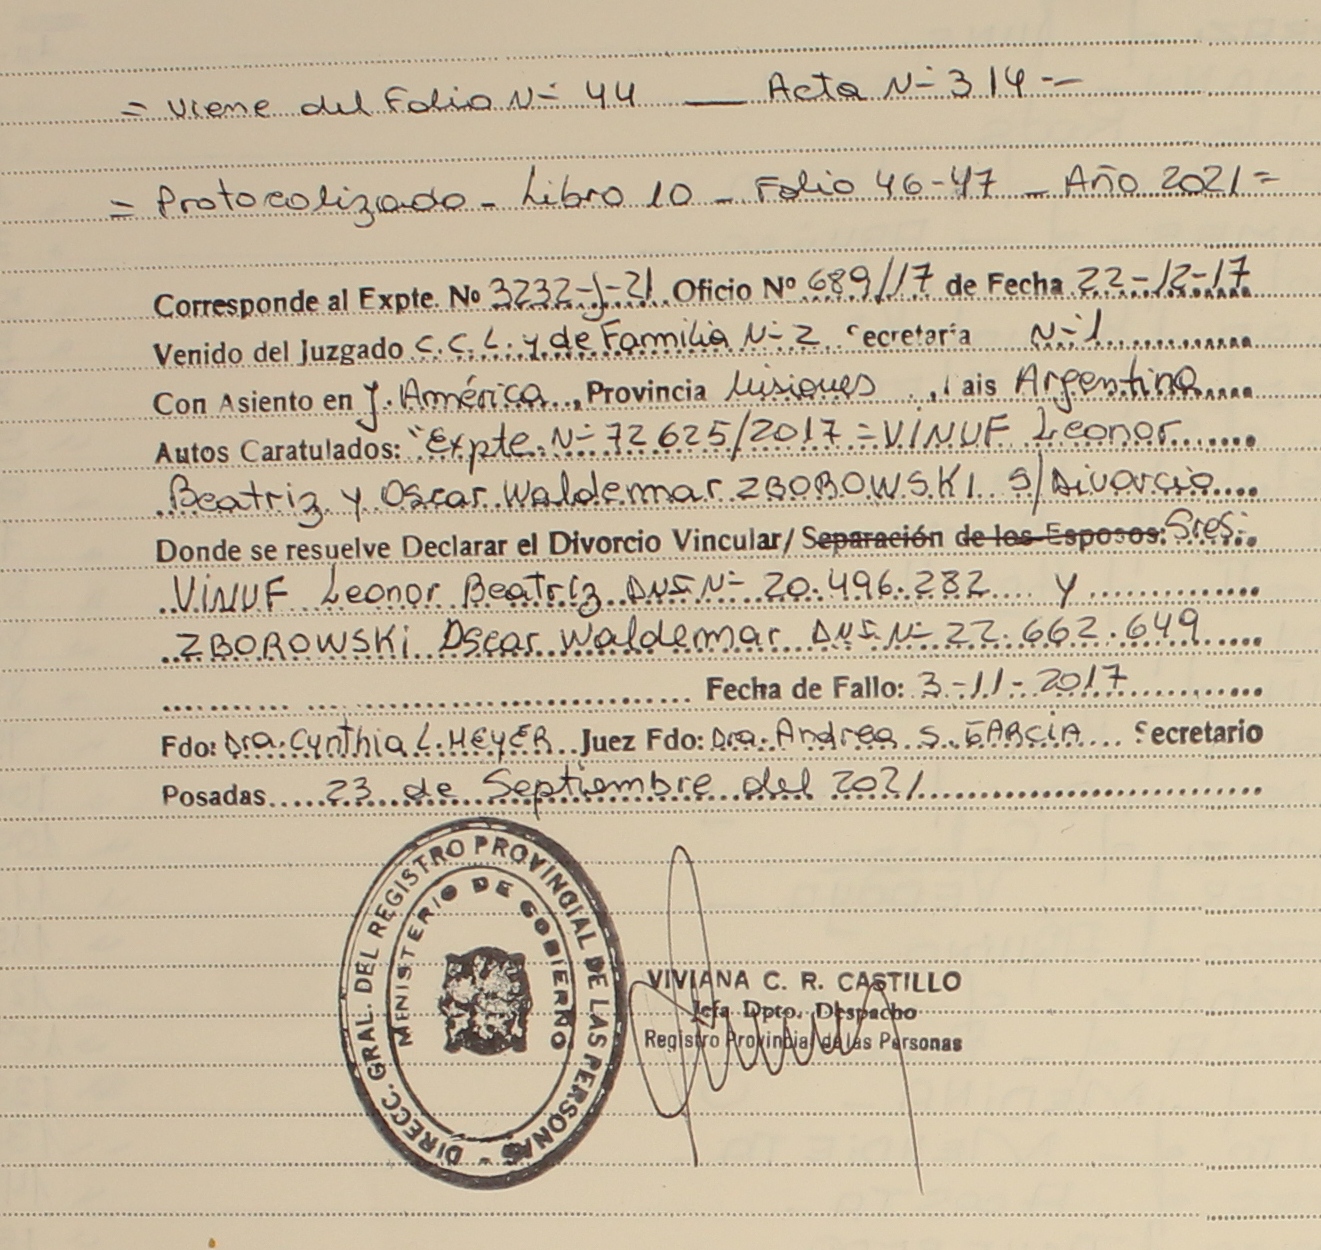 = Viene del Folio N= 44 — Acta N= 314 =
= Protocolizado - Libro 10 - Folio 46-47 - Año 2021 =
Corresponde al Expte. No 3232-J-21 Oficio Nº 689//17 de Fecha 22-12-17
Venido del Juzgado C.C.L. y de Familia N= 2 Secretaría N=1
Con Asiento en J. América, Provincia Misiones, Pais Argentina
Autos Caratulados: "Expte. N= 72625/2017 = VINUF Leonor
Beatriz y Oscar Waldemar ZBOROWSKI S/Divorcio
Donde se resuelve Declarar el Divorcio Vincular/ Separación de los Esposos: Sres:
VINUF Leonor Beatriz DNI N= 20.496.282 y
ZBOROWSKI Oscar Waldemar DNI N= 22.662.649
Fecha de Fallo: 3-11-2017
Fdo: Dra. Cynthia L. HEYER Juez Fdo: Dra. Andrea S. GARCIA Secretario
Posadas 23 de Septiembre del 2021
DIRECC. GRAL. DEL REGISTRO PROVINCIAL DE LAS PERSONAS -
MINISTERIO DE GOBIERNO
VIVIANA C. R. CASTILLO
Jefa Dpto. Despacho
Registro Provincial de las Personas